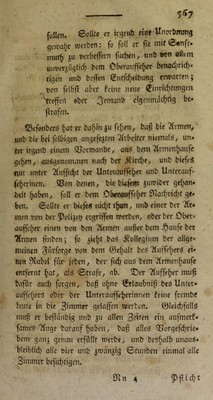 567
sollen. Sollte er irgend eine Unordnung
gewahr werden: so soll er sie mit Sanft-
muth zu verbessern suchen, und von allem
unverzüglich dem Oberaufseher benachrich-
tigen und dessen Entscheidung erwarten;
von selbst aber keine neue Einrichtungen
treffen oder Jemand eigenmächtig be-
strafen.
Besonders hat er dahin zu sehen, daß die Armen,
und die bei selbigen angesetzten Arbeiter niemals, un-
ter irgend einem Vorwande, aus dem Armenhause
gehen, ausgenommen nach der Kirche, und dieses
nur unter Aufsicht der Unteraufseher und Unterauf-
seherinnen. Von denen, die diesem zuwider gehan-
delt haben, soll er dem Oberaufseher Nachricht ge-
ben. Sollte er dieses nicht thun, und einer der Ar-
men von der Polizey ergriffen werden, oder der Ober-
aufseher einen von den Armen außer dem Hause der
Armen finden; so zieht das Kollegium der allge-
meinen Fürsorge von dem Gehalt des Aufsehers ei-
nen Rubel für jeden, der sich aus dem Armenhause
entfernt hat, als Strafe, ab. Der Aufseher muß
dafür auch sorgen, daß ohne Erlaubniß des Unter-
aufsehers oder der Unteraufseherinnen keine fremde
Leute in die Zimmer gelassen werden. Gleichfalls
muß er beständig und zu allen Zeiten ein aufmerk-
sames Auge darauf haben, daß alles Vorgeschrie-
bene ganz genau erfüllt werde, und deshalb unaus-
bleiblich alle vier und zwanzig Stunden einmal alle
Zimmer besichtigen.
Nn 4 Pflicht